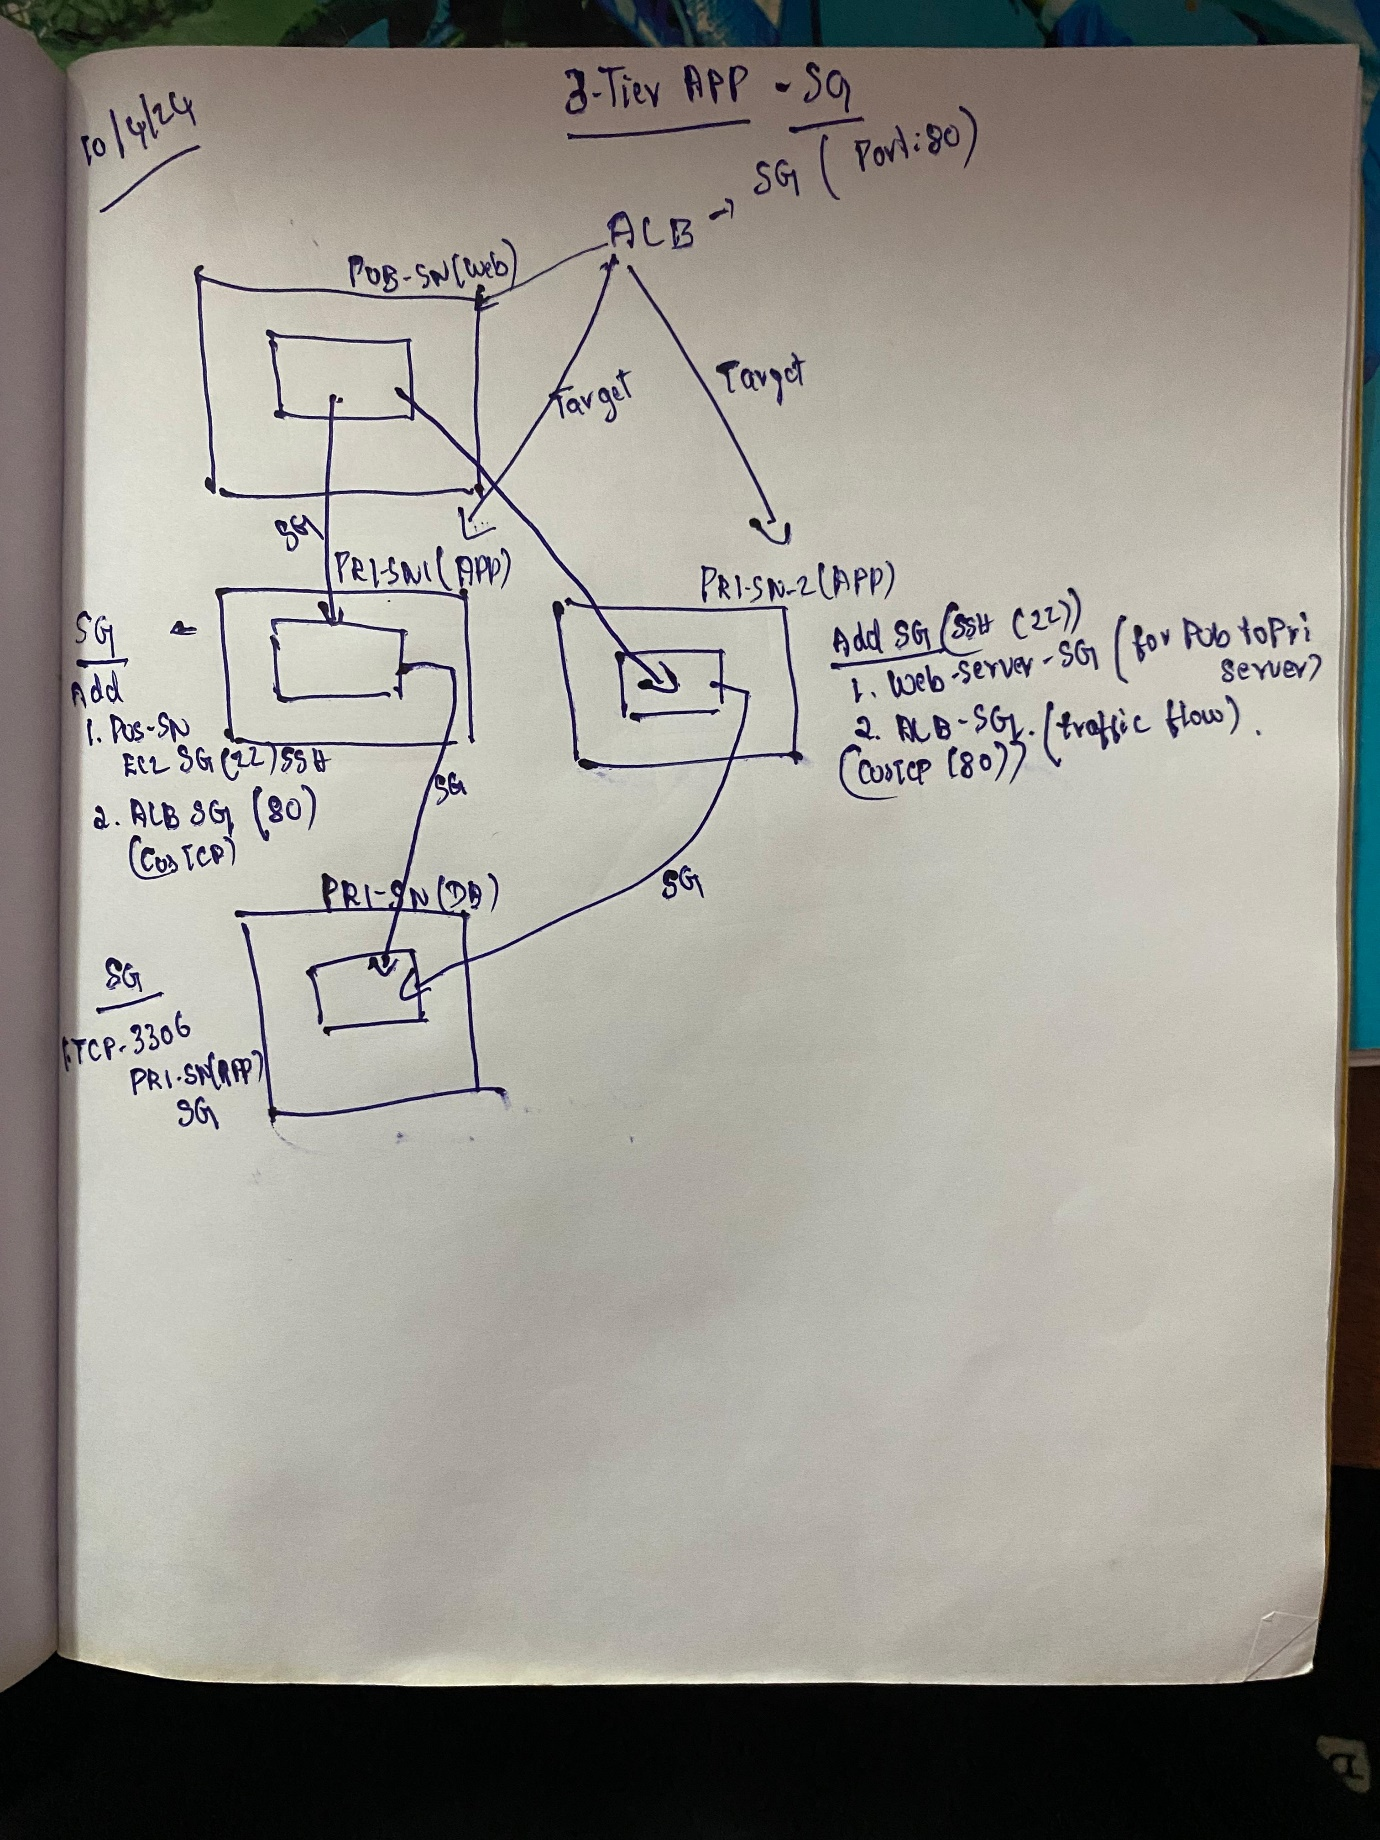 10/4/24
3-Tier APP - SG
SG (Port:80)
ALB →
PUB-SN(Web)
Target
Target
SG
PRI-SN1(APP)
PRI-SN-2(APP)
SG
Add
1. PUB-SN
EC2 SG(22)SSH
2. ALB SG (80)
(CUSTCP)
Add SG (SSH (22))
1. Web-Server-SG (for Pub to Pri
server)
2. ALB-SG. (traffic flow).
(CUSTCP (80))
SG
SG
PRI-SN(DB)
SG
1.TCP-3306
PRI-SN(APP)
SG